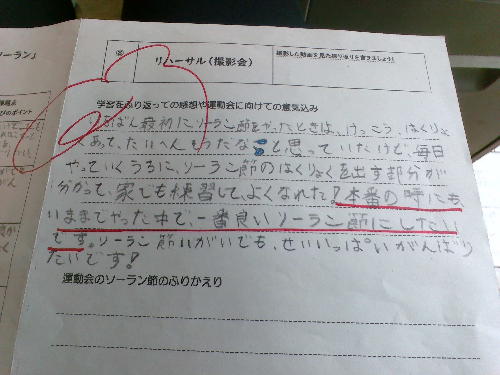 ソーラン」
のポイント
リハーサル(撮影会)
撮影した動画を見た振り返りを書きましょう!
学習をふり返っての感想や運動会に向けての意気込み
ばん最初にソーラン節をやったときは、けっこう、はくりょく
があって、たいへんそうだな と思っていたけど、毎日
やっていくうちに、ソーラン節のはくりょくを出す部分が
分かって、家でも練習して、よくなれた!本番の時にも、
いままでやった中で、一番良いソーラン節にしたい
です。ソーラン節いがいでも、せいいっぱいがんばり
たいです!
運動会のソーラン節のふりかえり